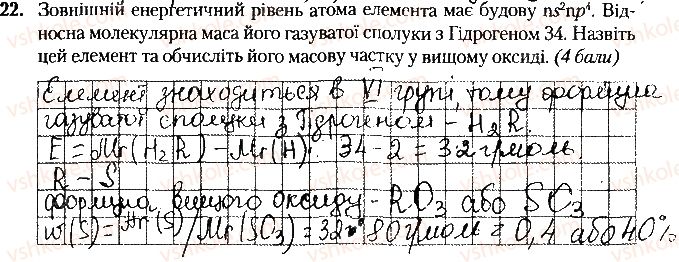 22. Зовнішній енергетичний рівень атома елемента має будову ns²np⁴. Від-
носна молекулярна маса його газуватої сполуки з Гідрогеном 34. Назвіть
цей елемент та обчисліть його масову частку у вищому оксиді. (4 бали)
Елемент знаходиться в VI групі, тому формула
газуватої сполуки з Гідрогеном – H₂R.
E = Mr(H₂R) – Mr(H). 34 - 2 = 32 г/моль.
R – S
формула вищого оксиду – RO₃ або SO₃
w(S) = Ar(S)/Mr(SO₃) = 32 · 80 г/моль = 0,4 або 40%